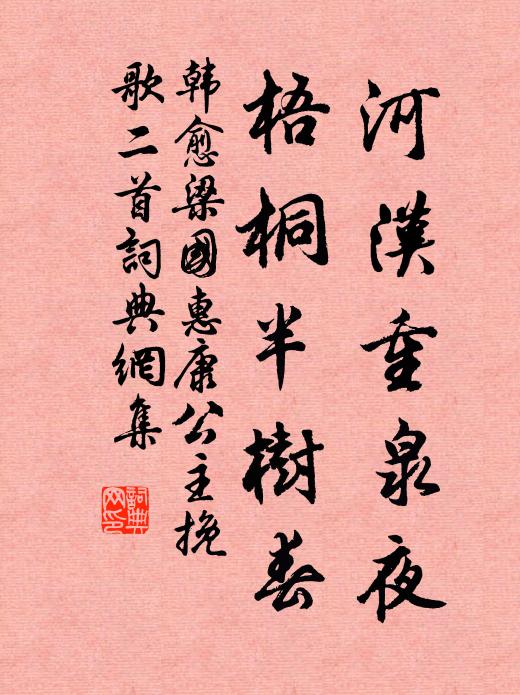 河漢重泉夜
梧桐半樹春
韩愈梁國惠康公主挽
歌二首詞典網集
詞典
网印